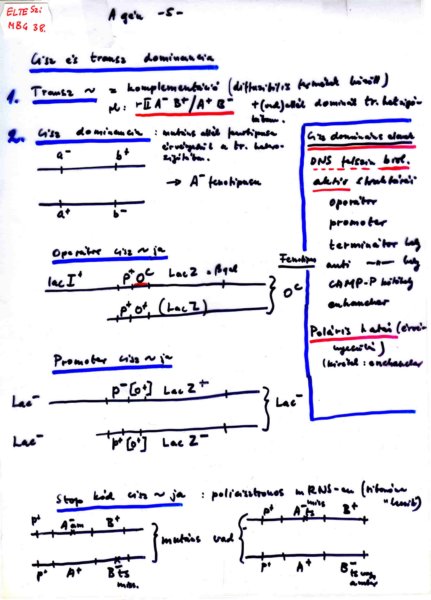 ELTE Szi
MBG 38.
A gén -5-
Cisz és transz dominancia
1. Transz ~ = komplementáció (diffuzibilis termékek között)
pl: rII A⁻ B⁺/A⁺ B⁻ +(vad) allél domináns tr. heterozig
2. Cisz dominancia : mutáns allél fenotípusa
érvényesül a tr. hetero-
zigótában.
a⁻ b⁺
→ A⁻ fenotípusa
a⁺ b⁻
Cisz domináns elemek
DNS felszín
aktív struktúrái
operátor
promoter
terminátor hely
anti -"- hely
CAMP-P kötőhely
enhancher
Poláris hatás
(kivétel: enhancher)
Operátor cisz ~ ja
Fenotípus
lac I⁺ p⁺ Oᶜ Lac Z
p⁺ O⁺ (Lac Z)
Oᶜ
Promoter cisz ~ ja
Lac⁻ p⁻ [O⁺] Lac Z⁺
Lac⁻
Lac⁻ p⁺ [O⁺] Lac Z⁻
Stop kód cisz ~ ja : policisztronos mRNS-en
p⁺ A⁻am B⁺
p⁺ A⁺ B⁻ts
miss.
mutáns vad
p⁺ A⁻miss ts B⁺
p⁺ A⁺ B⁻
amber